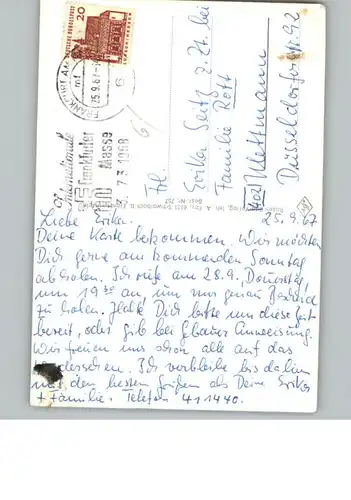 DEUTSCHE BUNDESPOST
20
FRANKFURT AM
25.9.67
Internationale
Frankfurter
Messe
7 3 1968
Frl.
Erika Seitz z. Zt. bei
Familie Rött
402 Mettmann
Düsseldorferstr. 92
25.9.67
Liebe Erika.
Deine Karte bekommen. Wir möchten
Dich gerne am kommenden Sonntag
abholen. Ich rufe am 28.9., Donnerstag,
um 19 30 an, um uns genau Bescheid
zu holen. Halte Dich bitte um diese Zeit
bereit, oder gib bei genauer Anweisung.
Wir freuen uns schon alle auf das
Wiedersehen. Ich verbleibe bis dahin
mit den besten Grüßen als Deine Erika
+ Familie. Telefon 411440.